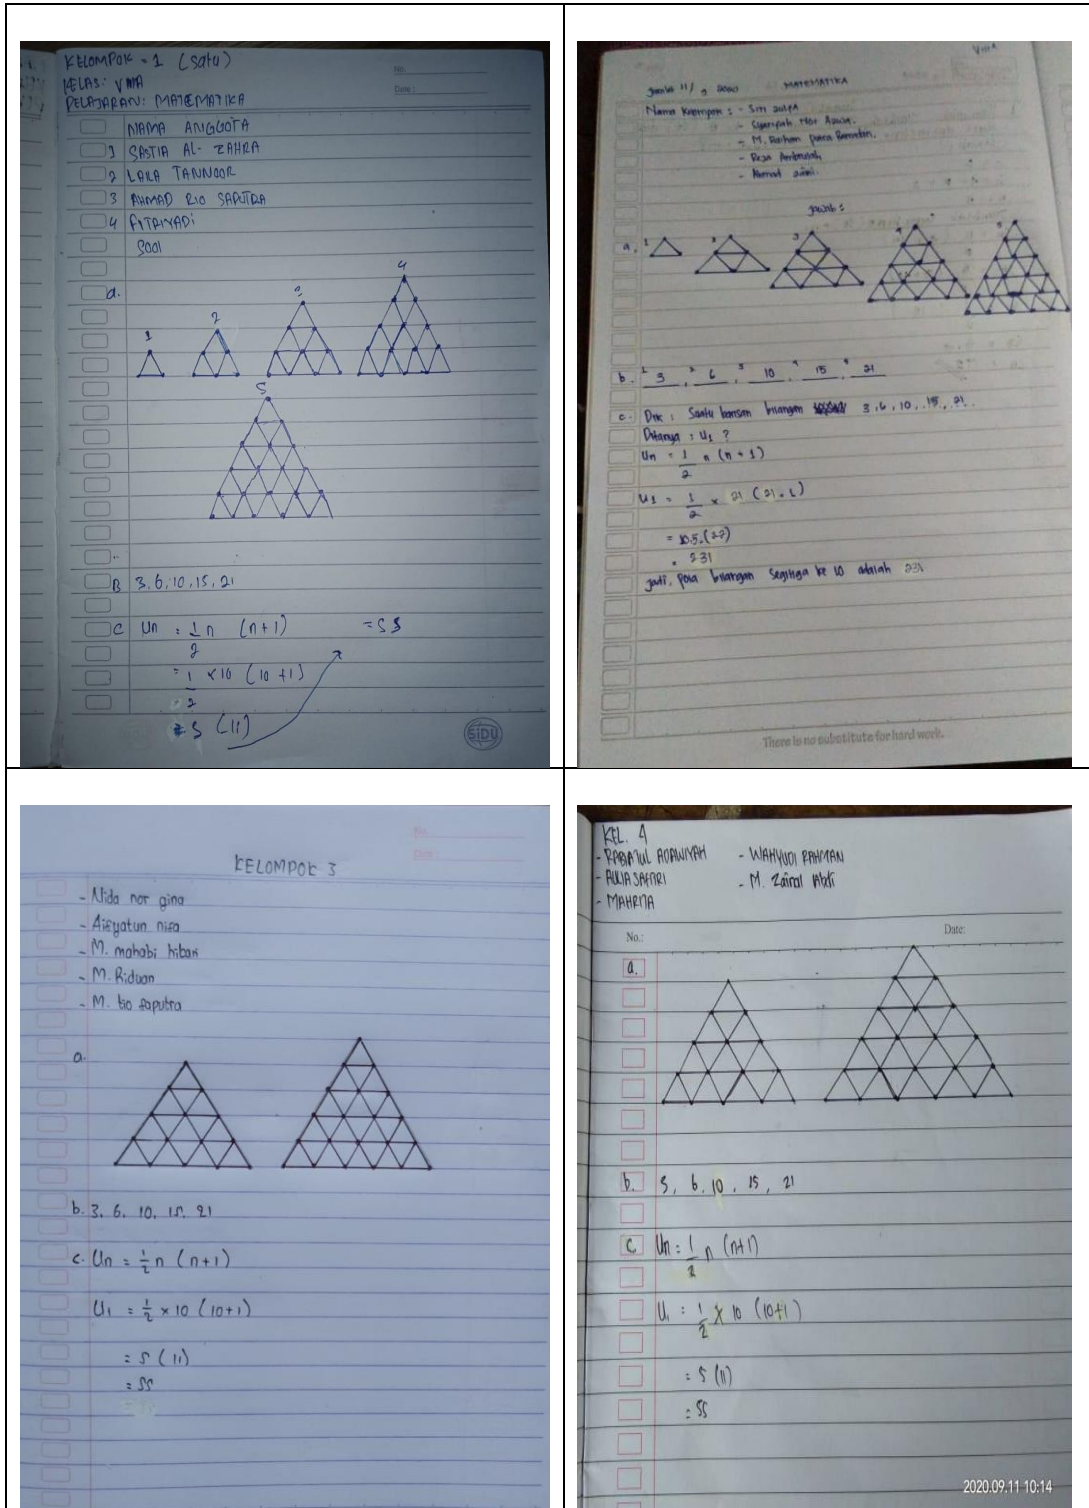 KELOMPOK = 1 (satu)
KELAS: VIIIA
PELAJARAN: MATEMATIKA
No:
Date:
NAMA ANGGOTA
1 SASTIA AL-ZAHRA
2 LAILA TANNOOR
3 AHMAD RIO SAPUTRA
4 FITRIYADI
Soal
a.
1
2
3
4
5
B 3, 6, 10, 15, 21
C Un = 1/2 n (n+1) = 55
= 1/2 × 10 (10+1)
= 5 (11)
SiDU
VIIIA
11/9 2020 MATEMATIKA
Nama Kelompok :
- Syaripah Nor
- M. Raihan putra
- Reza
- Ahmad
Jawab :
a. 1 2 3 4 5
b. 3, 6, 10, 15, 21
c. Dik : Suatu barisan bilangan 3, 6, 10, 15, 21.
Ditanya : U1 ?
Un = 1/2 n (n+1)
U1 = 1/2 × 21 (21+1)
= 10.5 (22)
= 231
Jadi, pola bilangan segitiga ke 10 adalah 231
There is no substitute for hard work.
No:
Date:
KELOMPOK 3
- Nida nor gina
- Aifyatun nisa
- M. mahabi hibban
- M. Riduan
- M. tio saputra
a.
b. 3, 6, 10, 15, 21
c. Un = 1/2 n (n+1)
U1 = 1/2 × 10 (10+1)
= 5 (11)
= 55
KEL. 4
- RABIATUL ADAWIYAH - WAHYUDI RAHMAN
- AULIA SAFITRI - M. Zainal Abdi
- MAHRITA
No.: Date:
a.
b. 3, 6, 10, 15, 21
C Un = 1/2 n (n+1)
U1 = 1/2 × 10 (10+1)
= 5 (11)
= 55
2020.09.11 10:14